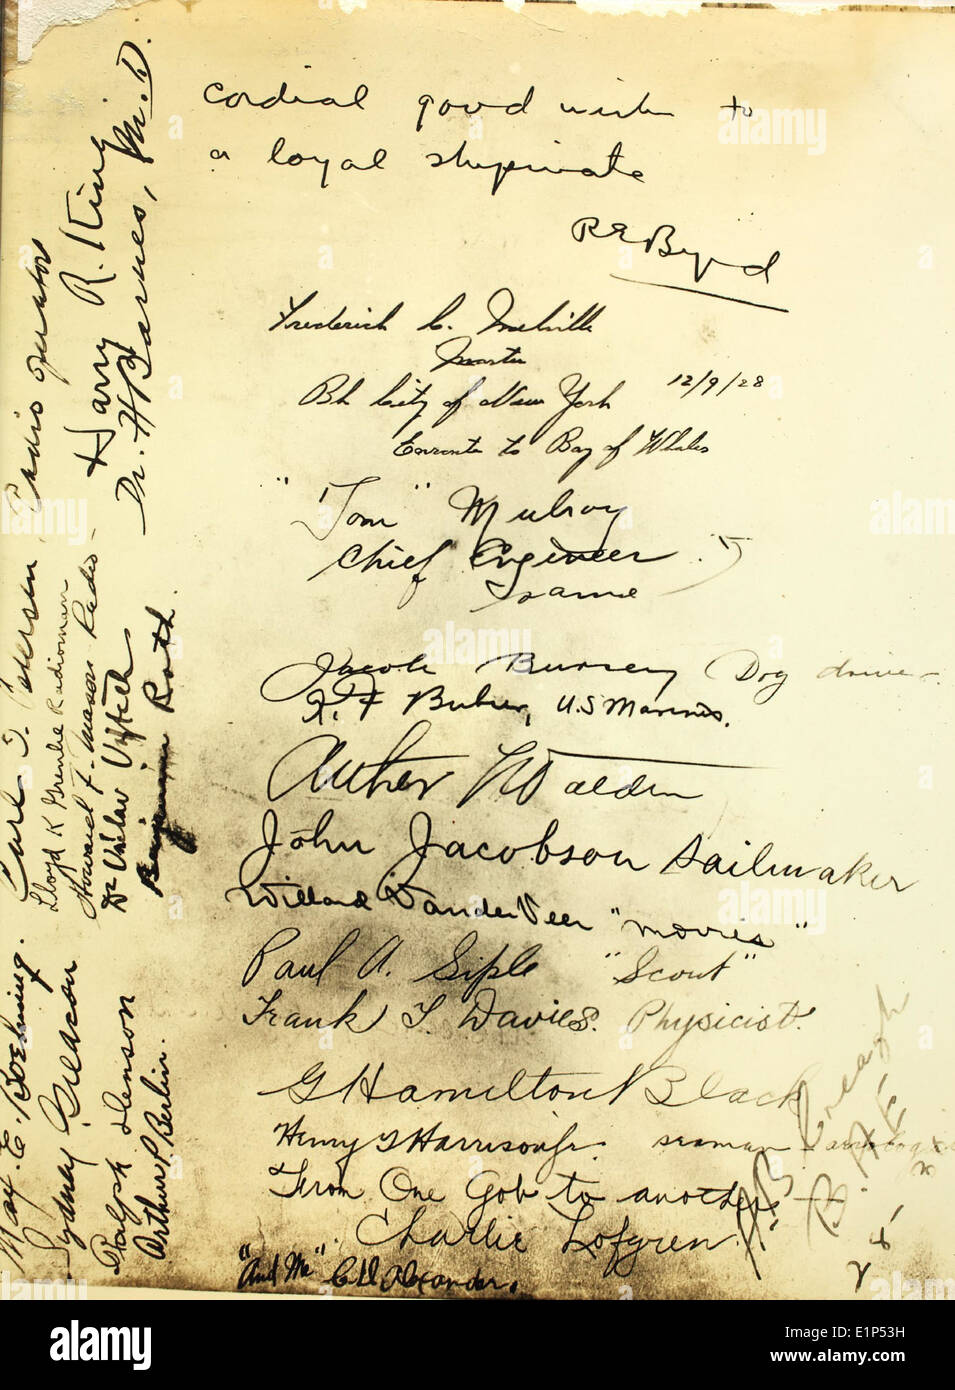 cordial good wishes to
a loyal shipmate
R E Byrd
Frederick C. Melville
Master
Bk City of New York 12/9/28
Enroute to Bay of Whales
"Tom" Mulroy
Chief Engineer
same
Jacob Bursey Dog driver
Arthur T Walden
John Jacobson Sailmaker
Willard Van der Veer "movies"
Paul A. Siple "Scout"
Frank T. Davies. Physicist.
G Hamilton Black
Henry T Harrison Jr.
From One Gob to another
Charlie Lofgren
"And Me" C D Alexander.
B.A.E.
Dr. H Barnes, M.D.
Harry R. King
Carl O. Petersen, Radio operator
Lloyd K Grenlie Radioman
Howard F. Mason Radio -
Dr Vaclav Vojtech
Benjamin Roth.
May E. Boehning.
Sydney Greason
Ralph Denson
Arthur P. Berlin.
a alamy
alamy stock photo
alamy
Image ID: E1P53H
www.alamy.com